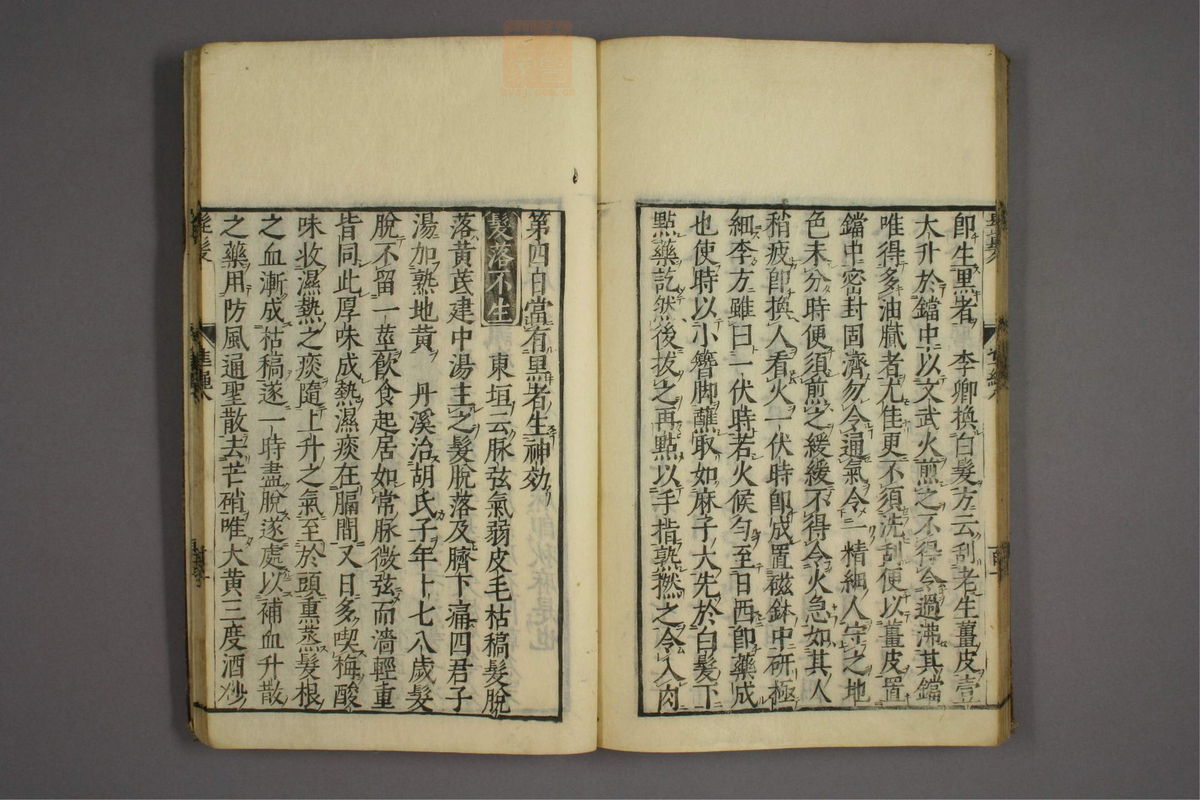 即生黑者　李卿換白髮方云刮老生薑皮壹
大升於鐺中以文武火煎之不得令過沸其鐺
唯得多油膩者尤佳更不須洗刮便以薑皮置
鐺中密封固濟勿令通氣令一精細人守之地
色未分時便須煎之緩緩不得令火急如其人
稍疲即換人看火一伏時即成置磁鉢中研極
細李方雖曰一伏時若火候勻至日西即藥成
也使時以小簪脚蘸取如麻子大先於白髮下
點藥訖然後拔之再點以手指熟撚之令入肉
第四日當有黑者生神効
髮落不生　東垣云脉弦氣弱皮毛枯稿髮脫
落黃芪建中湯主之髮脫落及臍下痛四君子
湯加熟地黃　丹溪治胡氏子年十七八歲髮
脫不留一莖飲食起居如常脉微弦而濇輕重
皆同此厚味成熱濕痰在膈間又日多喫梅酸
味收濕熱之痰隨上升之氣至於頭熏蒸髮根
之血漸成枯稿遂一時盡脫遂處以補血升散
之藥用防風通聖散去芒硝唯大黃三度酒炒